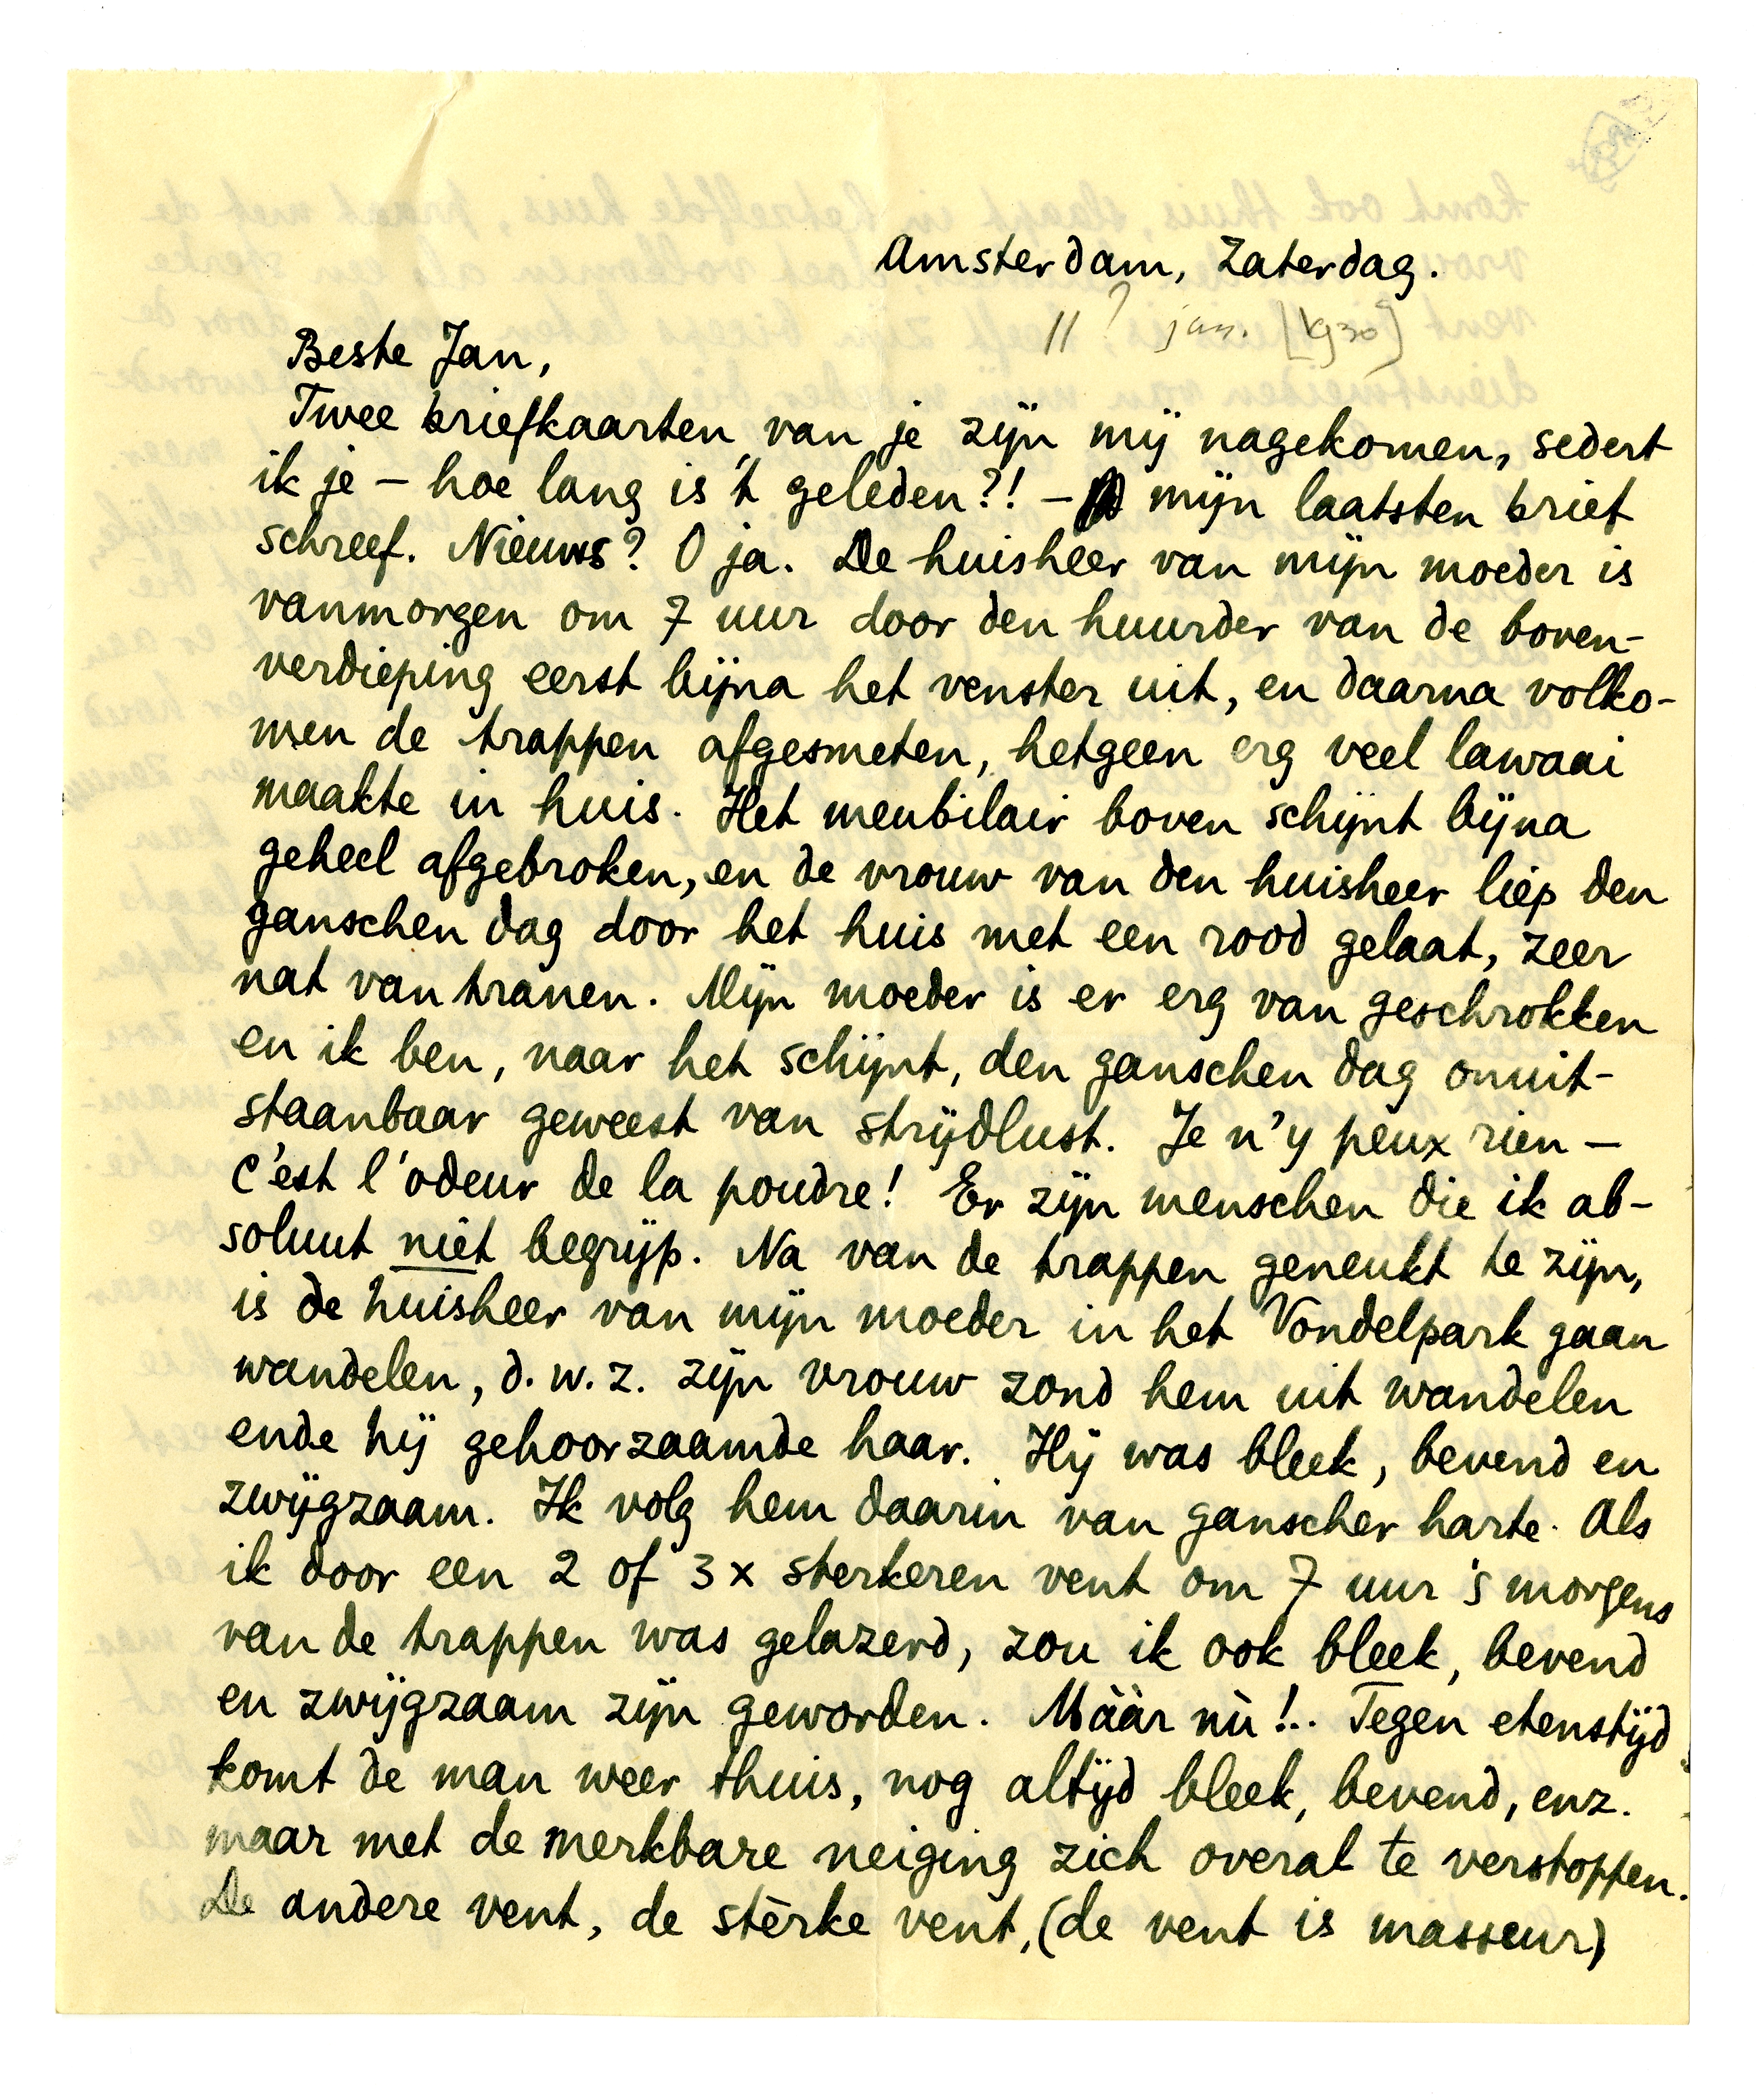 Amsterdam, Zaterdag.
11? jan. [1930]
Beste Jan,
Twee briefkaarten van je zijn mij nagekomen, sedert
ik je – hoe lang is 't geleden?! – mijn laatsten brief
schreef. Nieuws? O ja. De huisheer van mijn moeder is
vanmorgen om 7 uur door den huurder van de boven-
verdieping eerst bijna het venster uit, en daarna volko-
men de trappen afgesmeten, hetgeen erg veel lawaai
maakte in huis. Het meubilair boven schijnt bijna
geheel afgebroken, en de vrouw van den huisheer liep den
ganschen dag door het huis met een rood gelaat, zeer
nat van tranen. Mijn moeder is er erg van geschrokken
en ik ben, naar het schijnt, den ganschen dag onuit-
staanbaar geweest van strijdlust. Je n'y peux rien –
c'est l'odeur de la poudre! Er zijn menschen die ik ab-
soluut niet begrijp. Na van de trappen geneukt te zijn,
is de huisheer van mijn moeder in het Vondelpark gaan
wandelen, d.w.z. zijn vrouw zond hem uit wandelen
ende hij gehoorzaamde haar. Hij was bleek, bevend en
zwijgzaam. Ik volg hem daarin van ganscher harte. Als
ik door een 2 of 3 x sterkeren vent om 7 uur 's morgens
van de trappen was gelazerd, zou ik ook bleek, bevend
en zwijgzaam zijn geworden. Máár nù!.. Tegen etenstijd
komt de man weer thuis, nog altijd bleek, bevend, enz.
maar met de merkbare neiging zich overal te verstoppen.
De andere vent, de stèrke vent, (de vent is masseur)